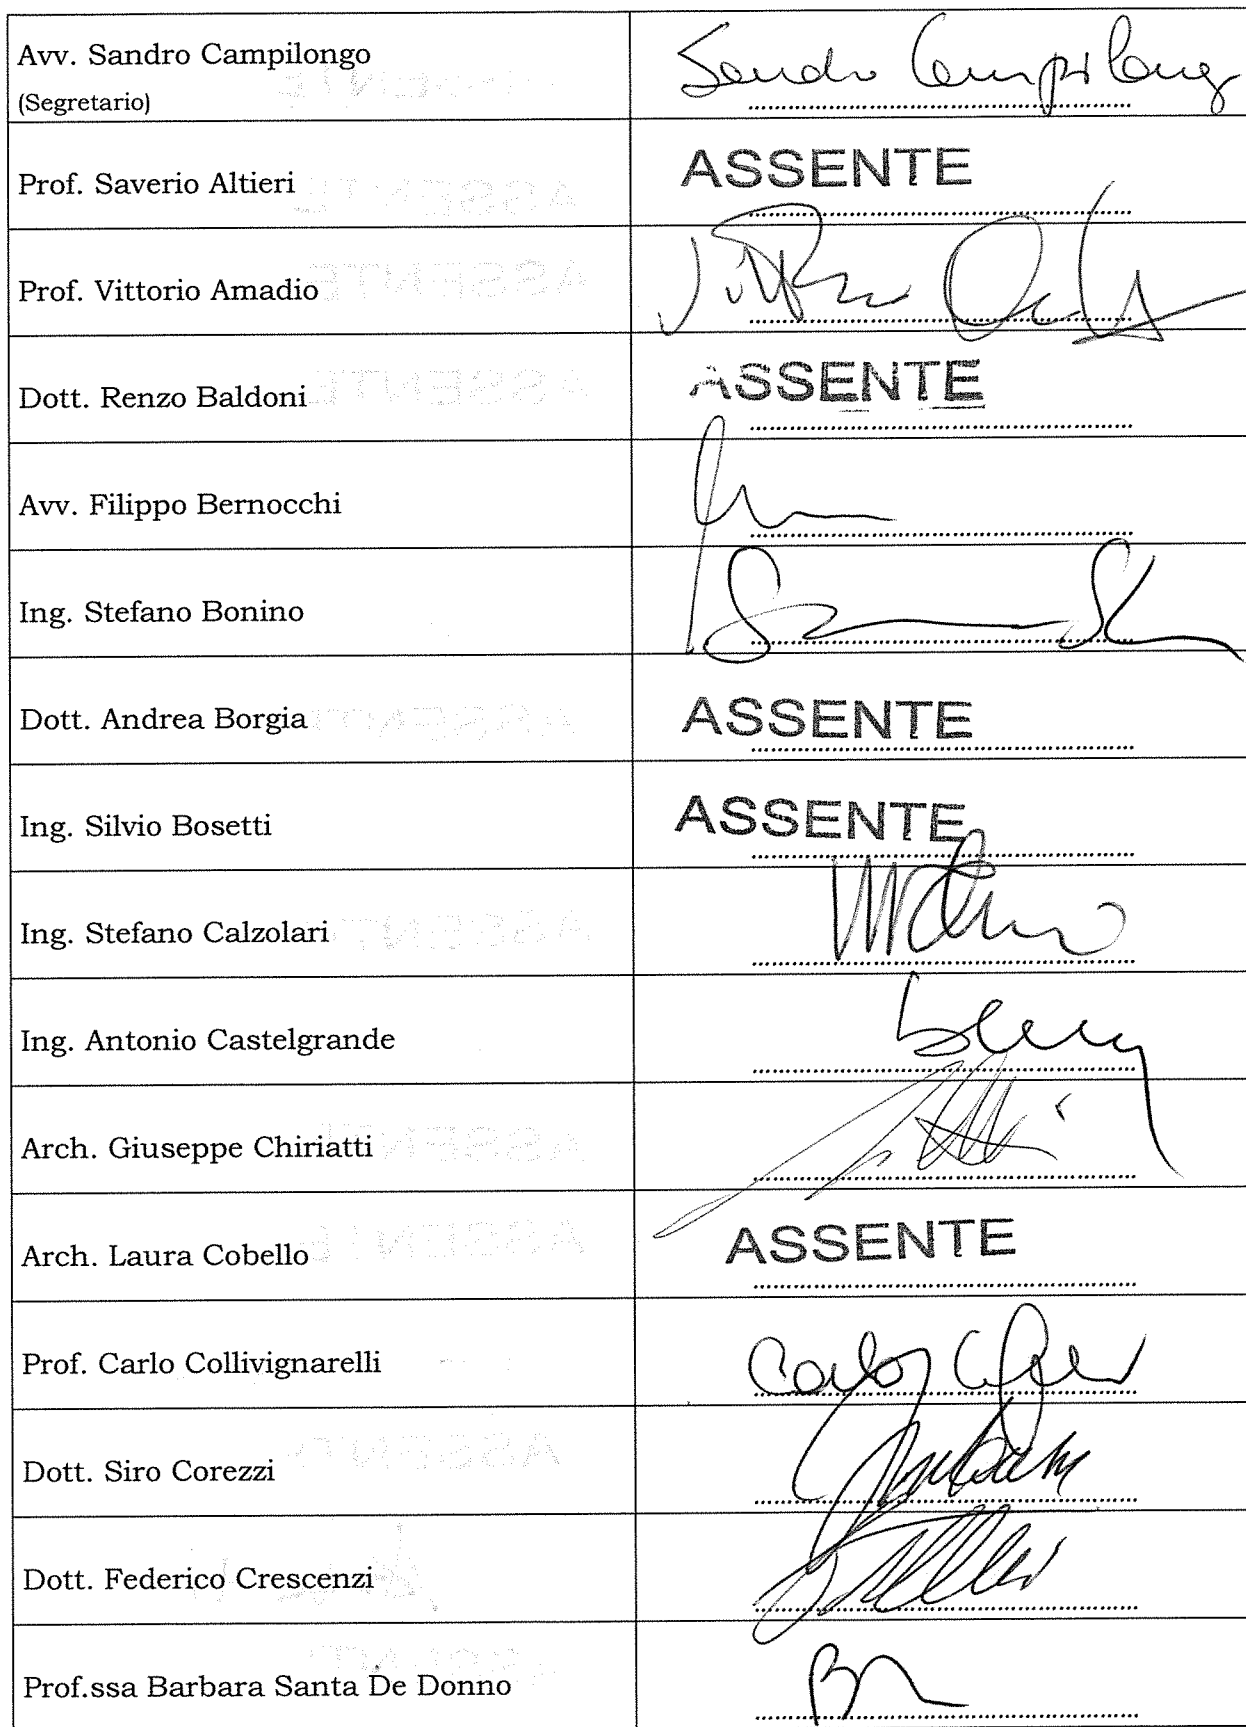 Avv. Sandro Campilongo
(Segretario)
Sandro Campilongo
Prof. Saverio Altieri
ASSENTE
Prof. Vittorio Amadio
Dott. Renzo Baldoni
ASSENTE
Avv. Filippo Bernocchi
Ing. Stefano Bonino
Dott. Andrea Borgia
ASSENTE
Ing. Silvio Bosetti
ASSENTE
Ing. Stefano Calzolari
Ing. Antonio Castelgrande
Arch. Giuseppe Chiriatti
Arch. Laura Cobello
ASSENTE
Prof. Carlo Collivignarelli
Dott. Siro Corezzi
Dott. Federico Crescenzi
Prof.ssa Barbara Santa De Donno